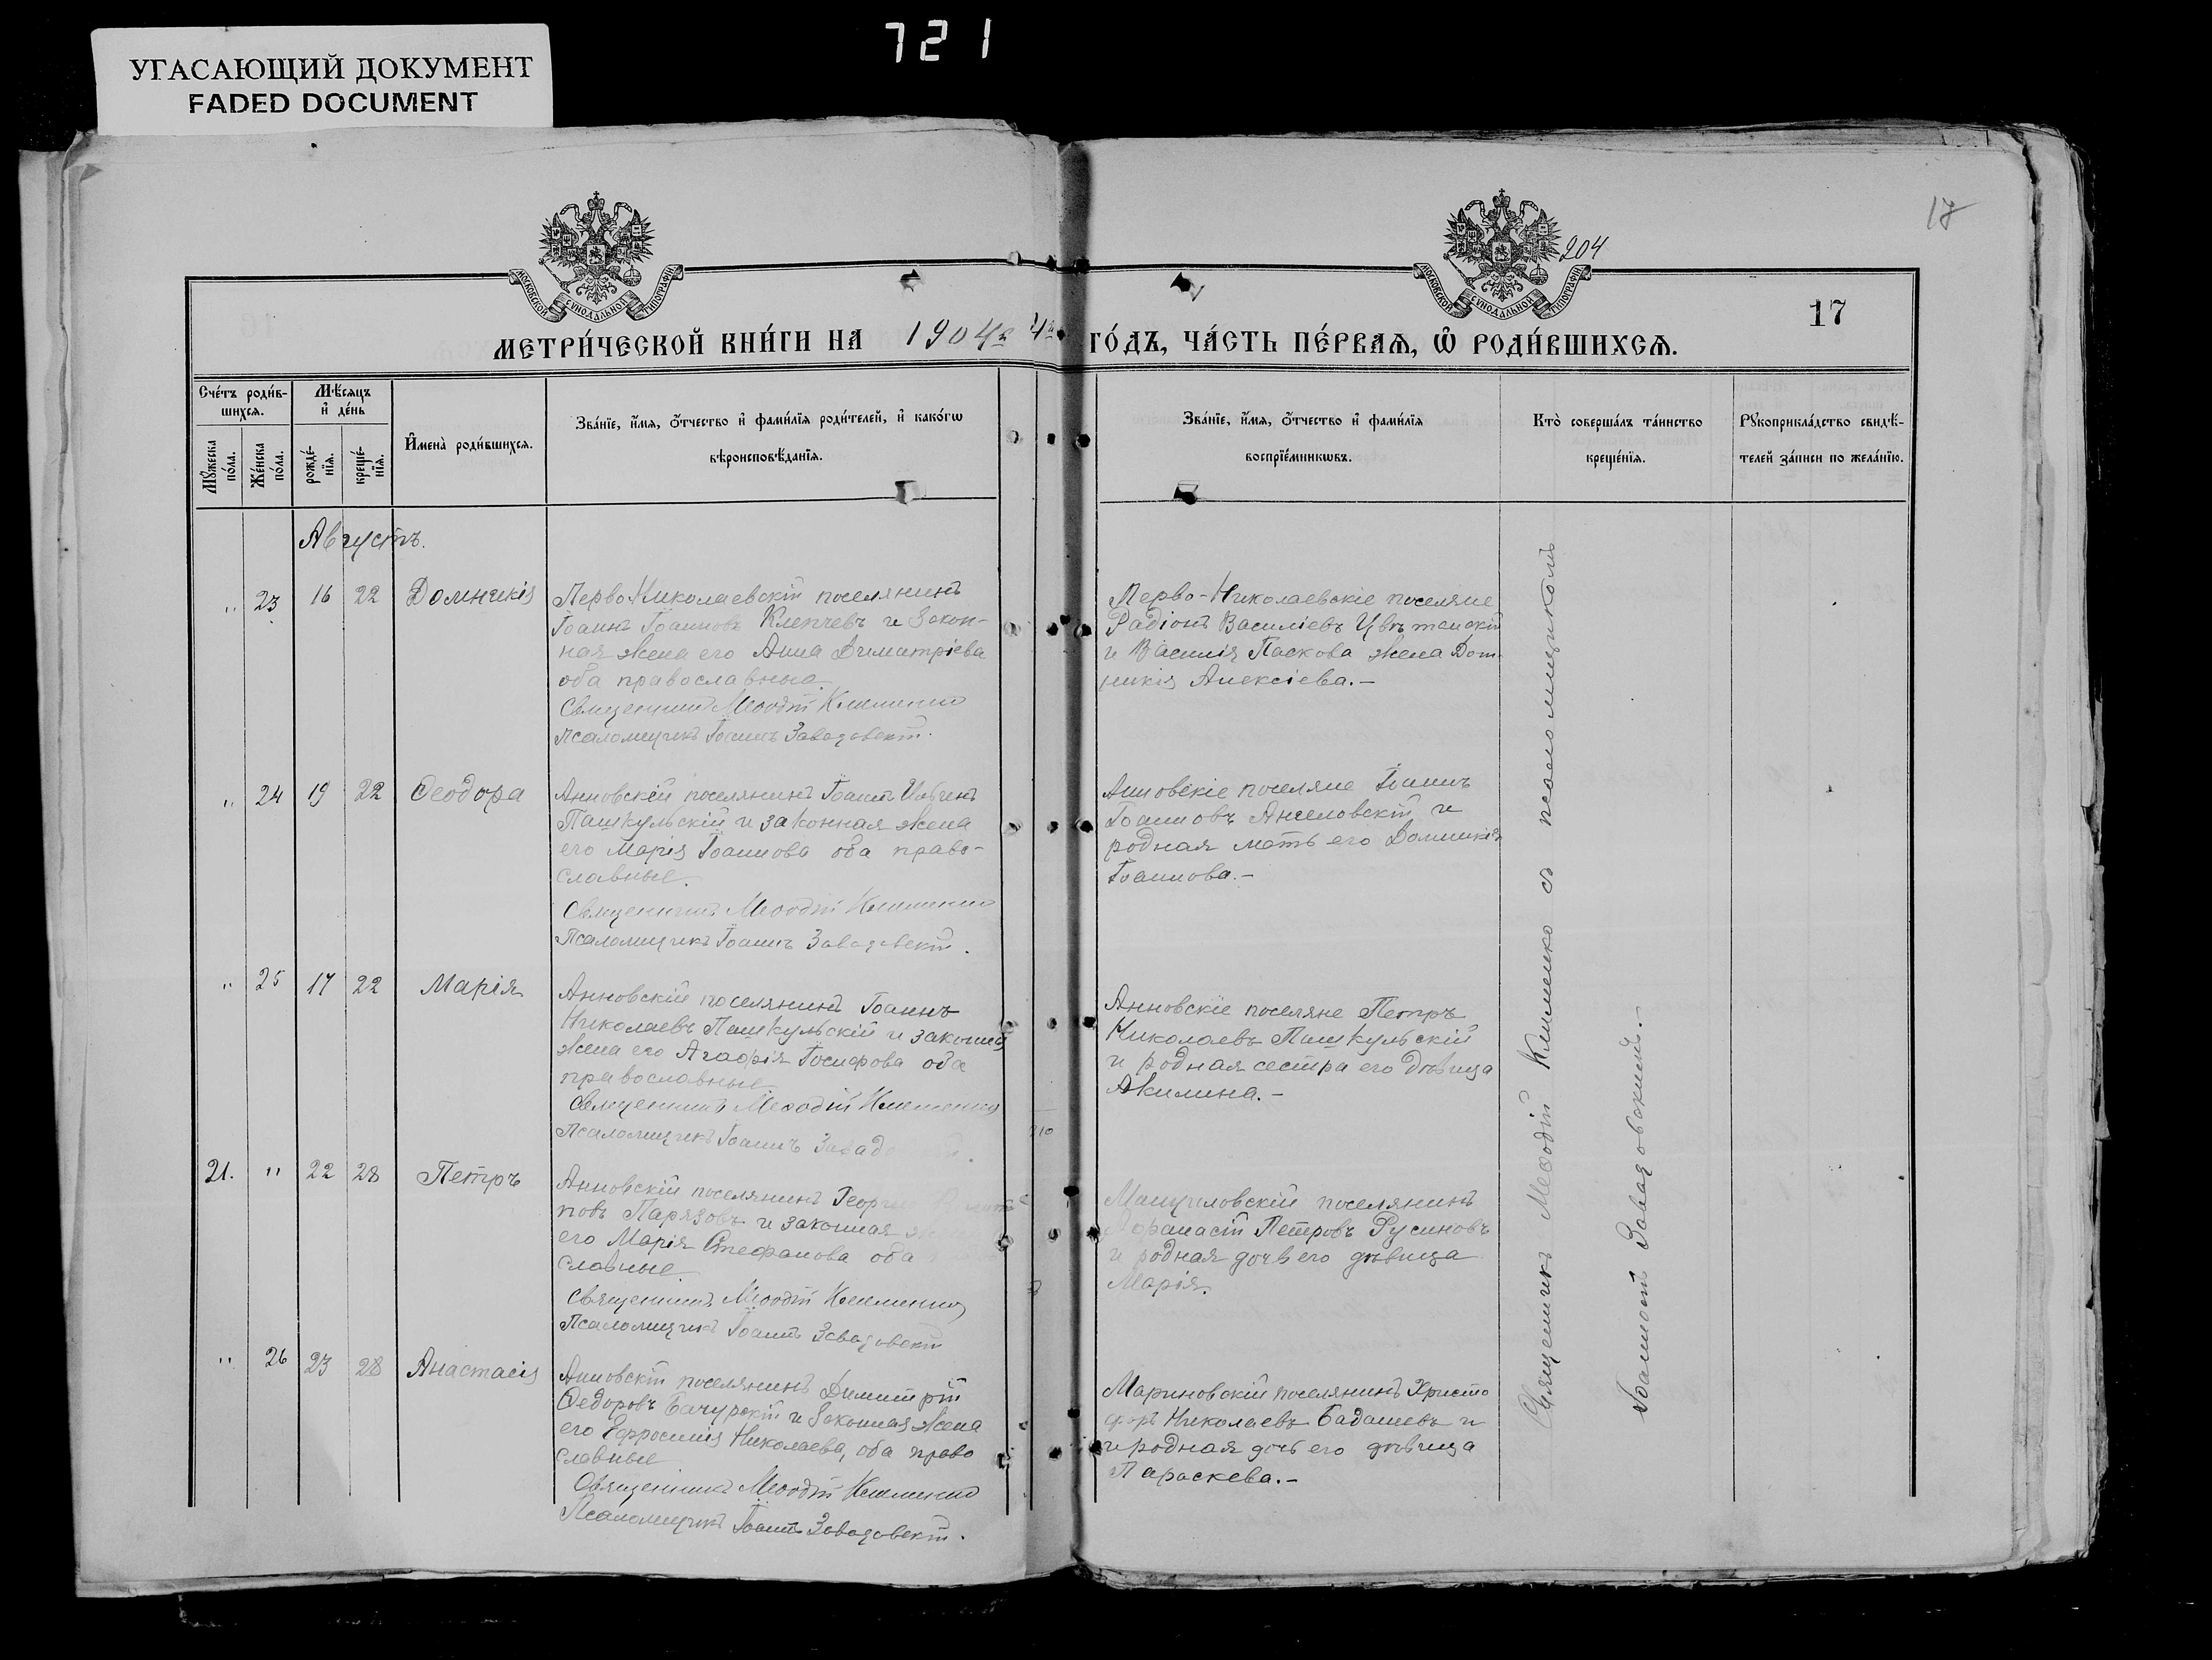 721
УГАСАЮЩИЙ ДОКУМЕНТ
FADED DOCUMENT
17
204
МОСКОВСКОЙ СѴНОДАЛЬНОЙ ТИПОГРАФІИ
МОСКОВСКОЙ СѴНОДАЛЬНОЙ ТИПОГРАФІИ
17
МЕТРИ́ЧЕСКОЙ КНИ́ГИ НА 1904й
ГО́ДЪ, ЧА́СТЬ ПЕ́РВАѦ, Ѽ РОДИ́ВШИХСѦ.
Сче́тъ роди́в-
шихсѧ.
Мꙋжеска по́ла.
Же́нска по́ла.
Мѣ́сѧцъ
и҆ де́нь
рожде́-
нїѧ.
креще́-
нїѧ.
И҆мена̀ роди́вшихсѧ.
Зва́нїе, и҆́мѧ, ѻ҆́тчество и҆ фами́лїѧ роди́телей, и҆ како́гѡ
вѣроисповѣ́данїѧ.
Зва́нїе, и҆́мѧ, ѻ҆́тчество и҆ фами́лїѧ
воспрїе́мникѡвъ.
Кто̀ соверша́лъ та́инство
креще́нїѧ.
Рꙋкоприкла́дство свидѣ́-
телей за́писи по жела́нїю.
Августъ.
" 23 16 22 Домникія
Перво Николаевскій поселянинъ
Іоаннъ Іоанновъ Клепчевъ и закон-
ная жена его Анна Димитріева
оба православные
Священникъ Меѳодій Клименко
Псаломщикъ Іоаннъ Завадовскій.
Перво-Николаевскіе поселяне
Радіонъ Василіевъ Цвѣтанскій
и Василія Паскова жена Дом
никія Алексіева.-
" 24 19 22 Ѳеодора
Анновскій поселянинъ Іоаннъ
Пашкульскій и законная жена
его Марія Іоаннова оба право-
славные.
Священникъ Меѳодій Клименко
Псаломщикъ Іоаннъ Завадовскій.
Анновскіе поселяне Іоаннъ
Іоанновъ Ангеловскій и
родная мать его Домникія
Іоаннова.-
" 25 17 22 Марія
Анновскій поселянинъ Іоаннъ
Николаевъ Пашкульскій и законная
жена его Агафія Іосифова оба
православные
Священникъ Меѳодій Клименко
Псаломщикъ Іоаннъ
Анновскіе поселяне Петръ
Николаевъ Пашкульскій
и родная сестра его дѣвица
Акилина.-
21. " 22 28 Петръ
Анновскій поселянинъ Георгій
повъ Парязовъ и законная
его Марія Стефанова оба
славные
Священникъ Меѳодій Клименко
Псаломщикъ Іоаннъ Завадовскій
поселянинъ
Аѳанасій Петровъ Русиновъ
и родная дочь его дѣвица
Марія.
" 26 23 28 Анастасія
Анновскій поселянинъ Димитрій
Ѳедоровъ Бачурскій и законная жена
его Ефросинія Николаева, оба право
славные
Священникъ Меѳодій Клименко
Псаломщикъ Іоаннъ Завадовскій.
Мариновскій поселянинъ Христо
форъ Николаевъ Бадашевъ и
и родная дочь его дѣвица
Параскева.-
Священникъ Меѳодій Клименко съ псаломщикомъ
Іоанномъ Завадовскимъ.-